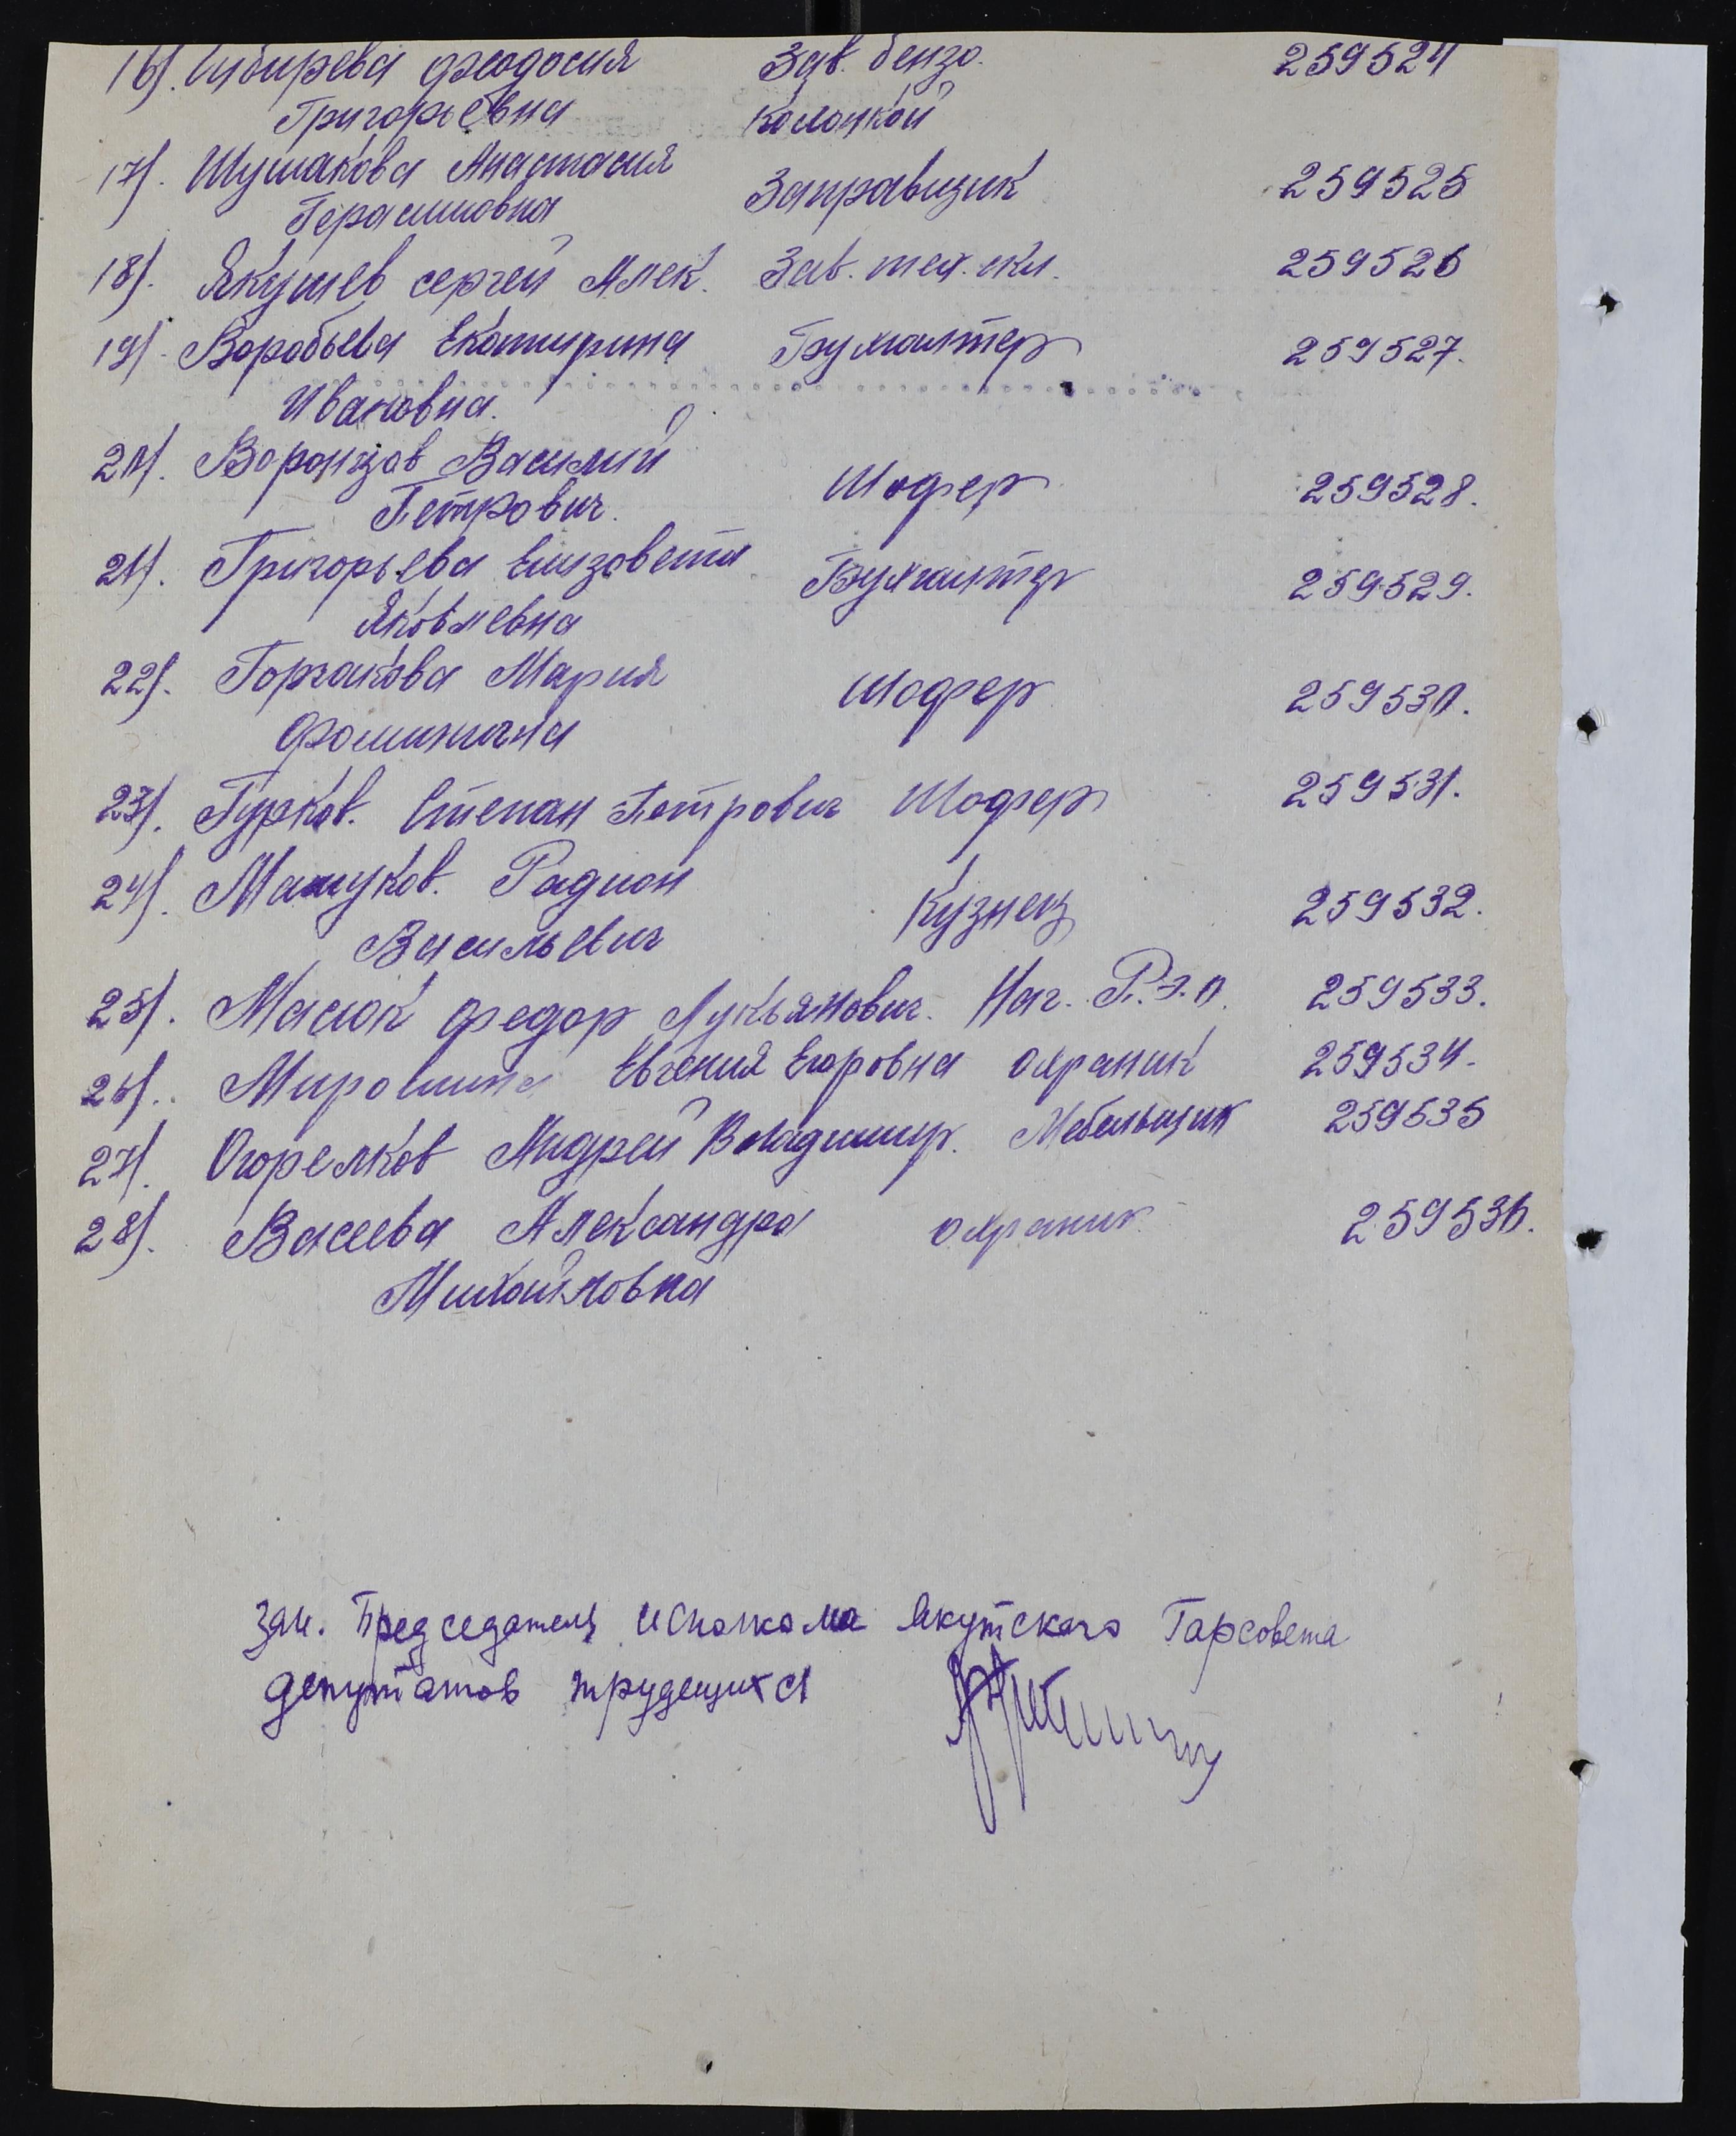 16). Сибирева Феодосия Зав. бензо. 259524
Григорьевна колонкой
17). Шушакова Анастасия Заправщик 259525
Герасимовна
18). Якушев Сергей Алек. Зав. тех. скл. 259526
19). Воробьева Екатирина Бухгалтер 259527.
Ивановна.
20). Воронцов Василий Шофер 259528.
Петрович.
21). Григорьева Елизовета Бухгалтер 259529.
Яковлевна
22). Горчакова Мария Шофер 259530.
Фоминична
23). Гурков. Степан Петрович Шофер 259531.
24). Машуков. Радион Кузнец 259532.
Васильевич
25). Масюк Федор Лукьянович. Нач. Р.Э.О. 259533.
26). Мирошина Евгения Егоровна Охраник 259534.
27). Огорелков Андрей Владимир. Мебельщик 259535
28). Васеева Александра охраник 259536.
Михайловна
Зам. Председатель исполкома Якутского Гарсовета
депутатов трудещихся